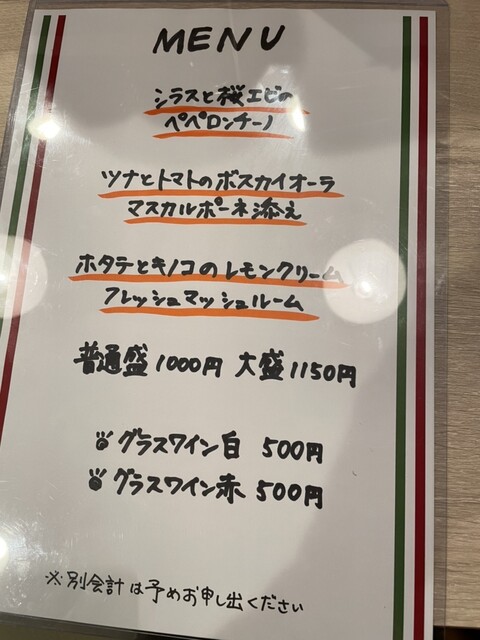 MENU
シラスと桜エビの
ペペロンチーノ
ツナとトマトのボスカイオーラ
マスカルポーネ添え
ホタテとキノコのレモンクリーム
フレッシュマッシュルーム
普通盛1000円 大盛1150円
グラスワイン白 500円
グラスワイン赤 500円
※別会計は予めお申し出ください